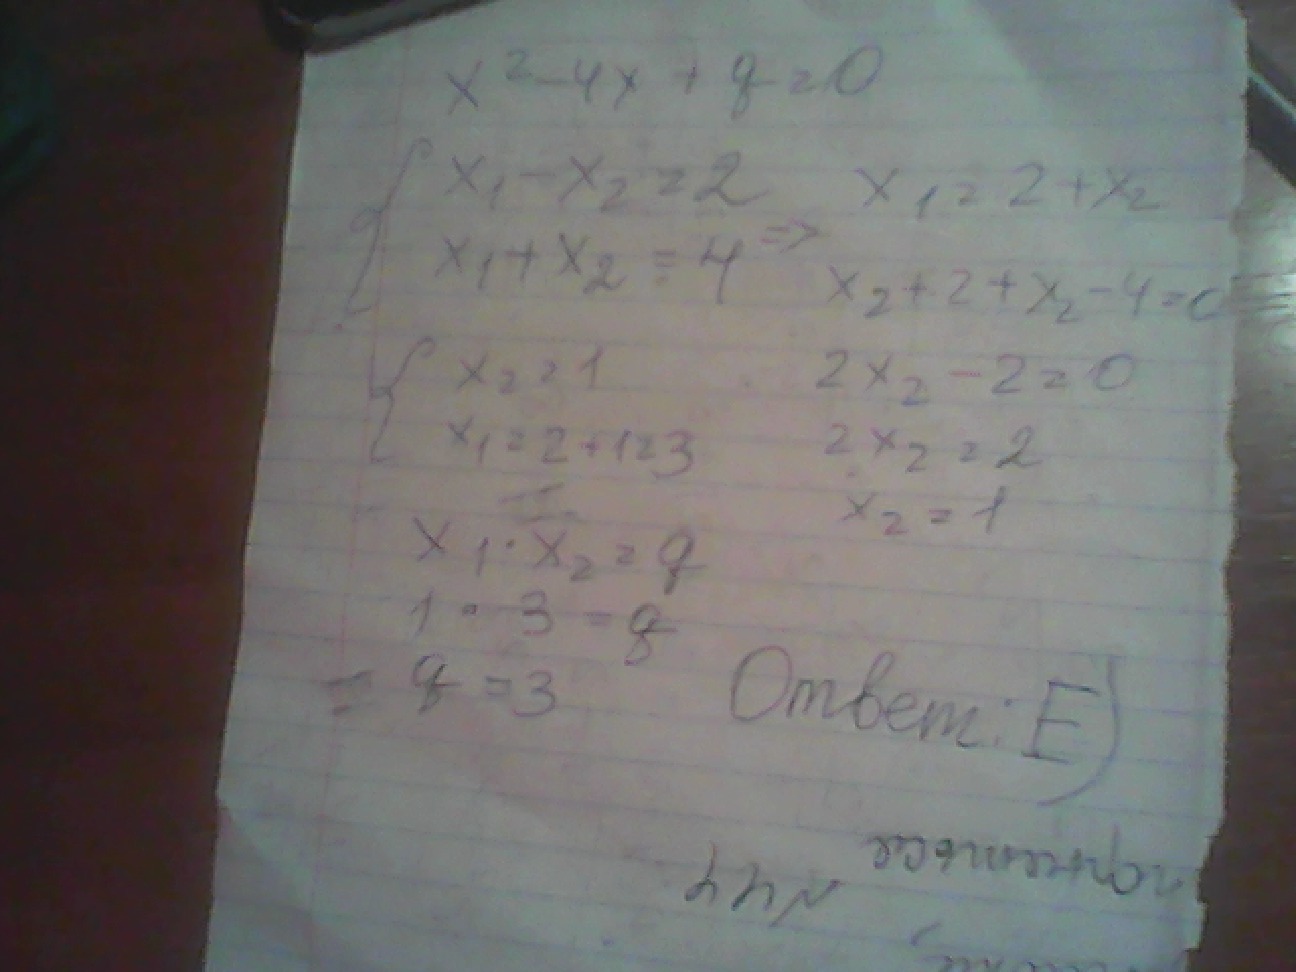 x² - 4x + q = 0
x₁ - x₂ = 2 x₁ = 2 + x₂
x₁ + x₂ = 4 => x₂ + 2 + x₂ - 4 = 0
x₂ = 1 2x₂ - 2 = 0
x₁ = 2 + 1 = 3 2x₂ = 2
x₂ = 1
x₁ · x₂ = q
1 · 3 = q
= q = 3 Ответ: E)
N44